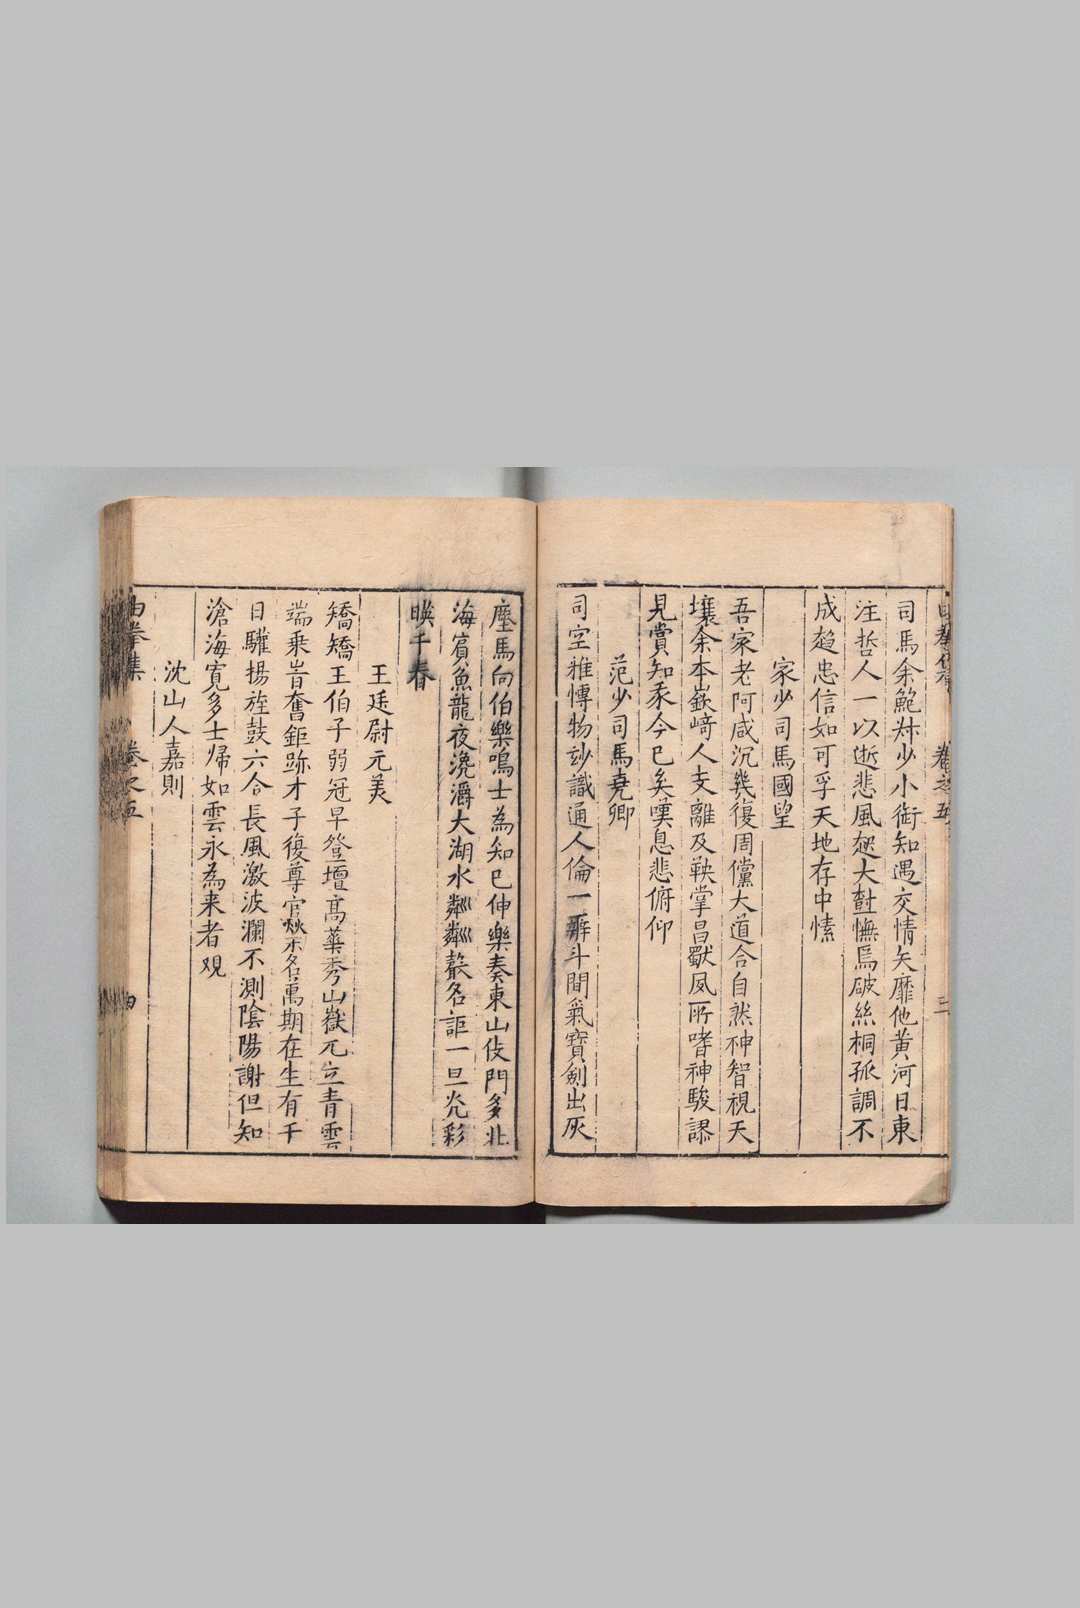 司馬余鮑叔少小銜知遇交情矢靡他黄河日東
注哲人一以逝悲風起大樹憮焉破絲桐孤調不
成趨忠信如可孚天地存中愫
家少司馬國望
吾家老阿咸沉幾復周儻大道合自然神智視天
壤余本嶔崎人支離及鞅掌昌歜夙所嗜神駿謬
見賞知希今已矣嘆息悲俯仰
范少司馬堯卿
司空雅博物玅識通人倫一辭斗間氣寶劍出灰
塵馬向伯樂鳴士為知已伸樂奏東山伎門多北
海賓魚龍夜瀺灂大湖水粼粼藂名詎一旦光彩
暎千春
王廷尉元美
矯矯王伯子弱冠早登壇高華秀山嶽兀立青雲
端乘峕奮鉅跡才子復尊官榮名萬期在生有千
目驩揚旌鼓六合長風激波瀾不測陰陽謝但知
滄海寬多士帰如雲永為来者观
沈山人嘉則
由拳集 卷之五 四
卷之五 三